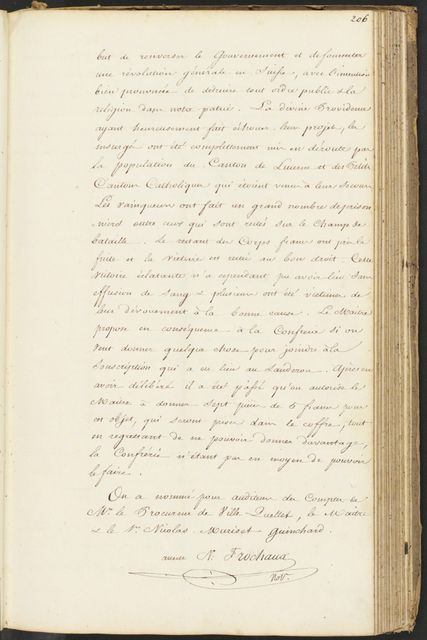 206
but de renverser le Gouvernement et de fomenter
une révolution générale en Suisse, avec l'intention
bien prononcée de détruire tout ordre public & la
religion dans notre patrie. La divine Providence
ayant heureusement fait échouer leur projet, les
insurgés ont été complettement mis en déroute par
la population du Canton de Lucerne et des Petits
Cantons Catholiques qui étoient venus à leur secours
Les vainqueurs ont fait un grand nombre de prison
niers outre ceux qui sont restés sur le Champ de
bataille. Le restant des Corps francs ont pris la
fuite et la victoire est restée au bon droit. Cette
victoire éclatante n'a cependant pu avoir lieu sans
effusion de sang & plusieurs ont été victimes de
leur dévouement à la bonne cause. Le Maître
propose en conséquence à la Confrérie si on
veut donner quelque chose pour joindre à la
souscription qui a eu lieu au Landeron. Après en
avoir délibéré il a été passé qu'on autorise le
Maître à donner sept pièces de 5 francs pour
cet objet, qui seront prises dans le coffre, tout
en regrettant de ne pouvoir donner davantage,
la Confrérie n'étant pas en moyen de pouvoir
le faire.
On a nommé pour auditeurs des Comptes de
Mr. le Procureur de Ville Quellet, le Maître
& le Sr. Nicolas Muriset Guinchard.
N. Frochaux
Not.